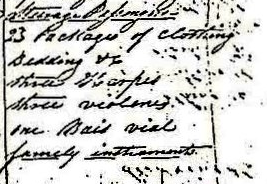 Steerage Passengers
23 Packages of Clothing
Bedding &c
three Harpes
three violened
one Bais vial
famely instruments